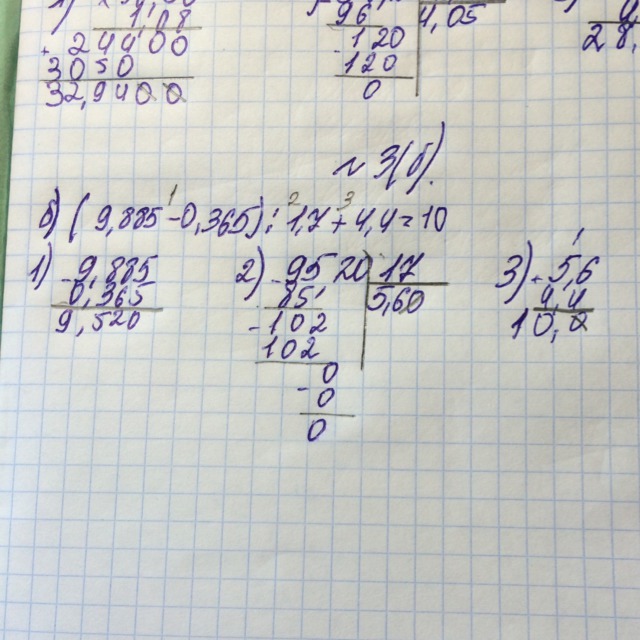 1,08
+ 24400
3050
32,9400
96
- 120
120
0
4,05
28,
№ 3(б).
1 2 3
б) ( 9,885 - 0,365) : 1,7 + 4,4 = 10
1) - 9,885
0,365
9,520
2) - 95,20 17
85 5,60
- 102
102
0
- 0
0
3) + 5,6
4,4
10,0